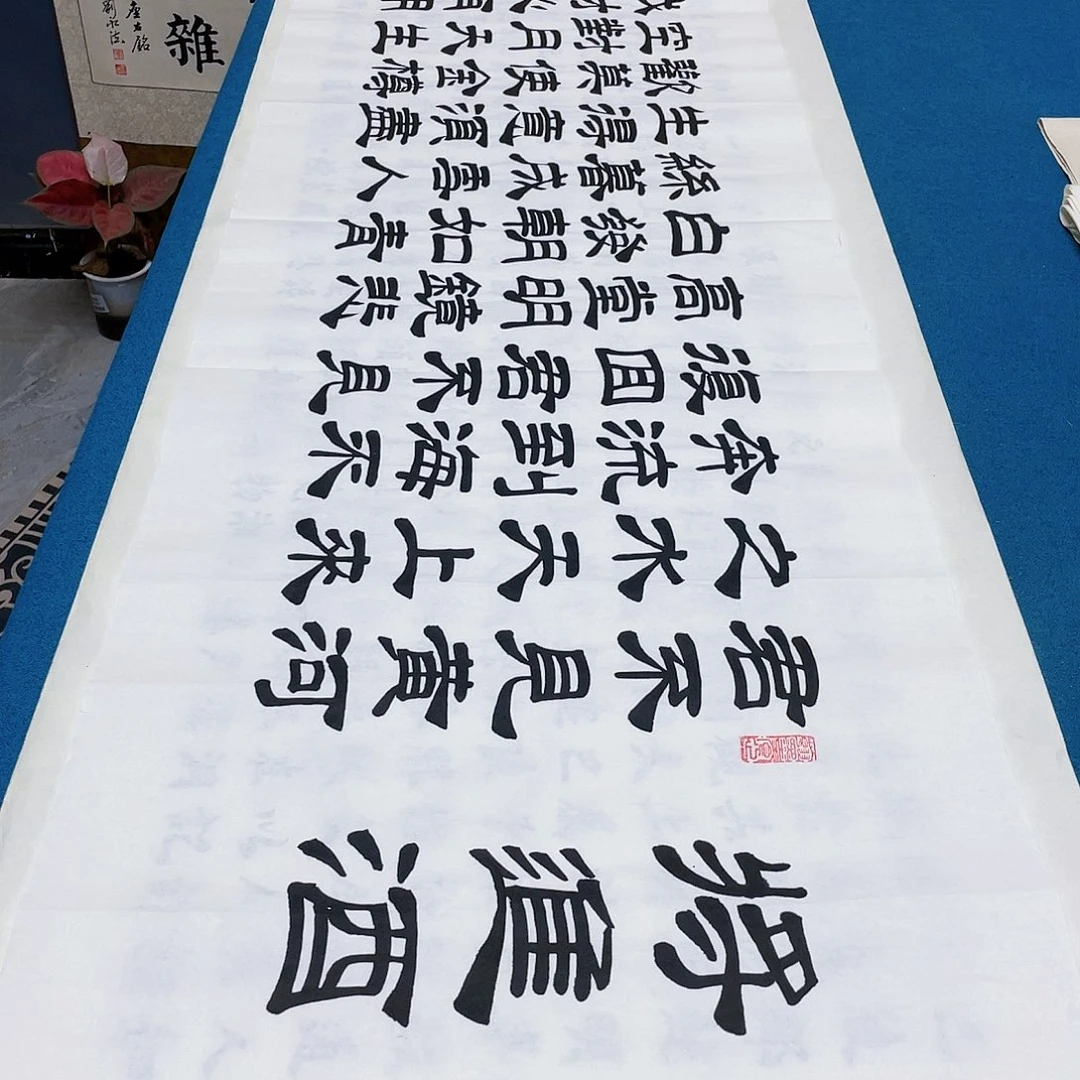 將進酒
君不見黃河
之水天上來
奔流到海不
復回君不見
高堂明鏡悲
白發朝如青
絲暮成雪人
生得意須盡
歡莫使金樽
空對月天生
雜
座右銘